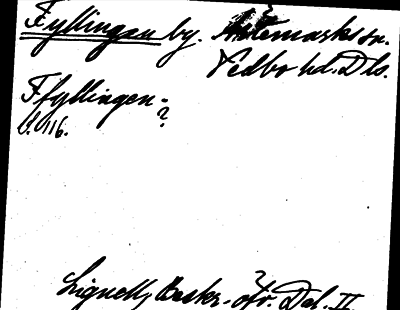 Fyllingan by. Artemarks sn.
Vedbo hd. Dls.
Ffyllingen-?
s. 116.
Lignell, Beskr. ofv. Dal. II